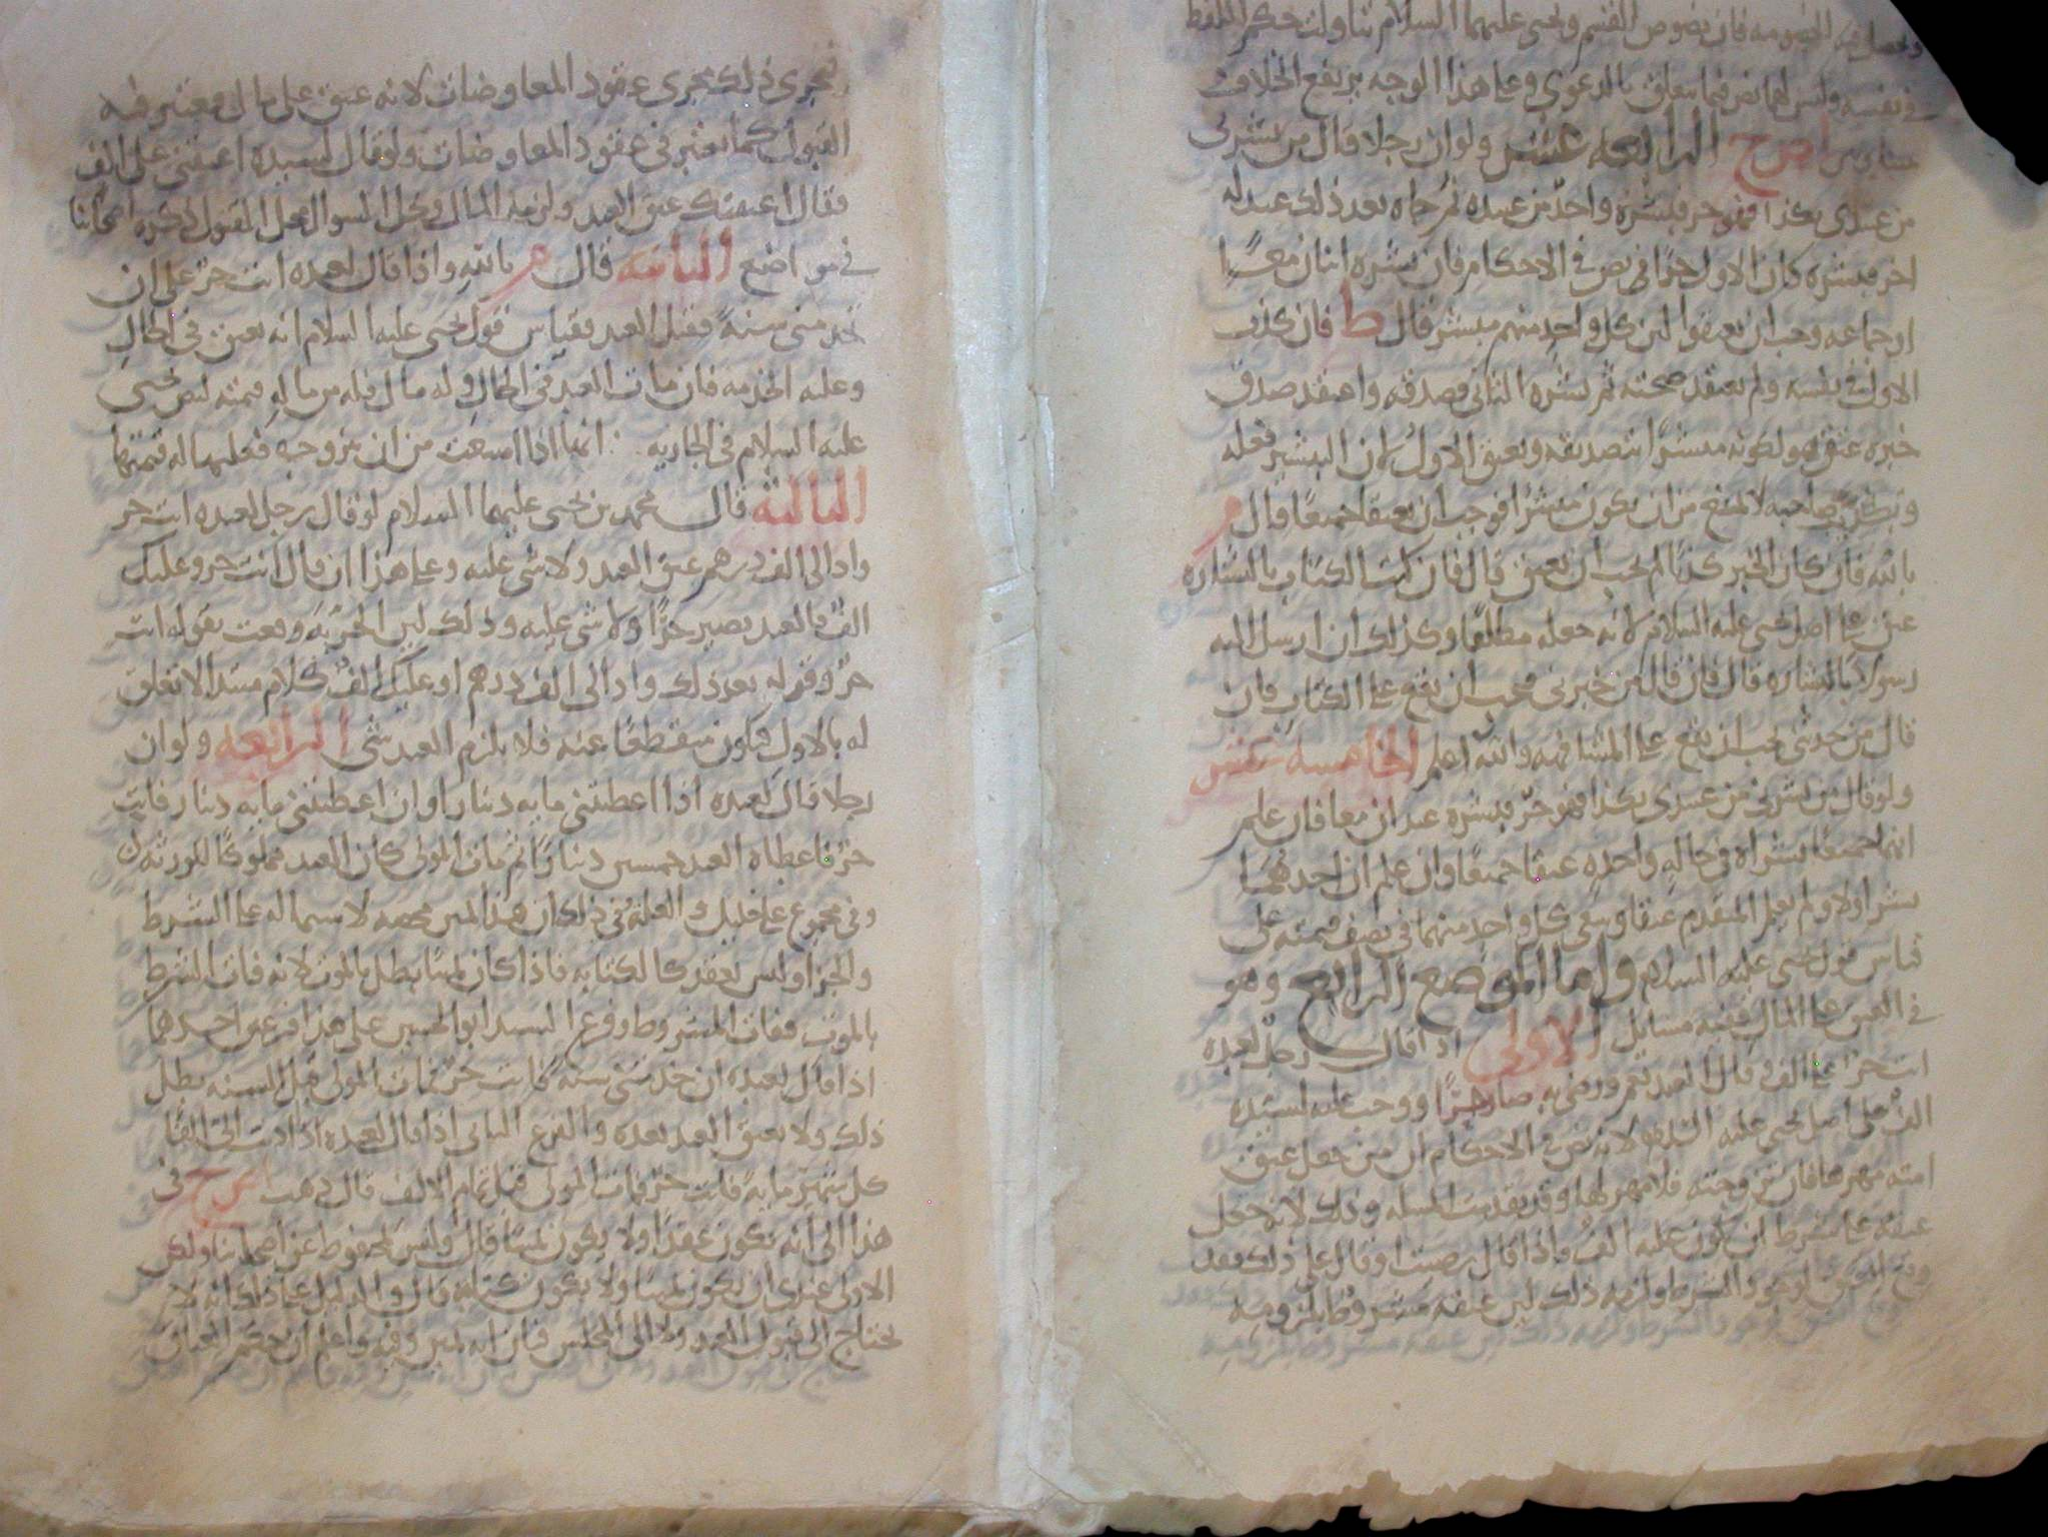 فيه الخصومه فان نصوص القسم ويحيى عليهما السلام تناولت حكم اللفظ
في نفسه وليس لهما نص فيما يتعلق بالدعوى وعلى هذا الوجه يرتفع الخلاف
الرابعه عشر ولو ان رجلا قال من بشرني
من عبيدي بكذا فهو حر فبشره واحد من عبيده ثم جاه بعد ذلك عبد له
اخر فبشره كان الاول حرا في نص في الاحكام فان بشره اثنان معا
او جماعه وجب ان يعتقوا لان كل واحد منهم مبشر قال ط فان كذب
الاول في نفسه ولم يعتقد صحته ثم بشره الثاني فصدقه واعتقد صدق
خبره عتق هو لكونه مبشرا بتصديقه ويعتق الاول لان التبشير فعله
وتكذيب صاحبه لا يمنع من ان يكون مبشرا فوجب ان يعتقا جميعا قال م
بالله فان كان الخبر كذبا لم يجب ان يعتق قال فان كتب الكتاب بالبشاره
عتق على اصل يحيى عليه السلام لانه جعله مطلقا وكذلك ان ارسل اليه
رسولا بالبشاره قال فان قال من خبرني فيجب ان يقع على الكتاب فان
قال من حدثني فيجب ان يقع على المشافهه والله اعلم الخامسه عشر
ولو قال من بشرني من عبيدي بكذا فهو حر فبشره عبدان معا فان علم
انهما جميعا بشراه في حاله واحده عتقا جميعا وان علم ان احدهما
بشر اولا ولم يعلم المتقدم عتقا وسعى كل واحد منهما في نصف قيمته على
قياس قول يحيى عليه السلام واما الموضع الرابع وهو
في العتق على المال ففيه مسايل الاولى اذا قال رجل لعبده
انت حر على الف فقال العبد نعم ورضي به صار حرا ووجب عليه لسيده
الف على اصل يحيى عليه السلام لانه نص في الاحكام ان من جعل عتق
امته مهرها فان تزوجته فلا مهر لها وقد تقدمت المسله وذلك لانه جعل
عتقه على شرط ان يكون عليه الف واذا قال رضيت او قال على ذلك فقد
وقع العتق لوجود الشرط ولزمه ذلك لان عتقه مشروط بلزومه
فيجرى ذلك مجرى عقود المعاوضات لانه عتق على مال فيعتبر فيه
القبول كما يعتبر في عقود المعاوضات ولو قال لسيده اعتقني على الف
فقال اعتقتك عتق العبد ولزمه المال وحل السوال محل القبول ذكره اصحابنا
في مواضع الثانيه قال م بالله واذا قال لعبده انت حر على ان
تخدمني سنة فقبل العبد فقياس قول يحيى عليه السلام انه يعتق في الحال
وعليه الخدمه فان مات العبد في الحال وله مال فله من ماله قيمته لنص يحيى
عليه السلام في الجاريه انها اذا امتنعت من ان يتزوجها فعليها له قيمتها
الثالثه قال محمد بن يحيى عليهما السلام لو قال رجل لعبده انت حر
واد الي الف درهم عتق العبد ولا شي عليه وعلى هذا ان قال انت حر وعليك
الف فالعبد يصير حرا ولا شي عليه وذلك لان الحريه وقعت بقوله انت
حر وقوله بعد ذلك واد الي الف درهم او عليك الف كلام مبتدا لا تعلق
له بالاول فيكون منقطعا عنه فلا يلزم العبد شي الرابعه ولو ان
رجلا قال لعبده اذا اعطيتني مايه دينار او ان اعطيتني مايه دينار فانت
حر فاعطاه العبد خمسين دينارا ثم مات المولى كان العبد مملوكا للورثه
وفي مجموع علي خليل والعله في ذلك ان هذا يمين محضه لاشتماله على الشرط
والجزا وليس بعقد كالكتابه فاذا كان يمينا بطل بالموت لانه فات الشرط
بالموت ففات المشروط وفرع السيد ابو الحسين على هذا فرعين احدهما
اذا قال لعبده ان خدمتني سنه فانت حر فمات المولى قبل السنه بطل
ذلك ولا يعتق العبد بعده والفرع الثاني اذا قال لعبده اذا اديت الي الفا
كل شهر مايه فانت حر فمات المولى قبل تمام الالف قال ذهب ح في
هذا الى انه يكون عقدا ولا يكون يمينا قال وليس بمحفوظ عن اصحابنا ولكن
الاولى عندي ان يكون يمينا ولا يكون كتابه قال والدليل على ذلك انه لا
يحتاج الى قبول العبد ولا الى المجلس فبان انه يمين وفيه واعلم ان حكم العتاق